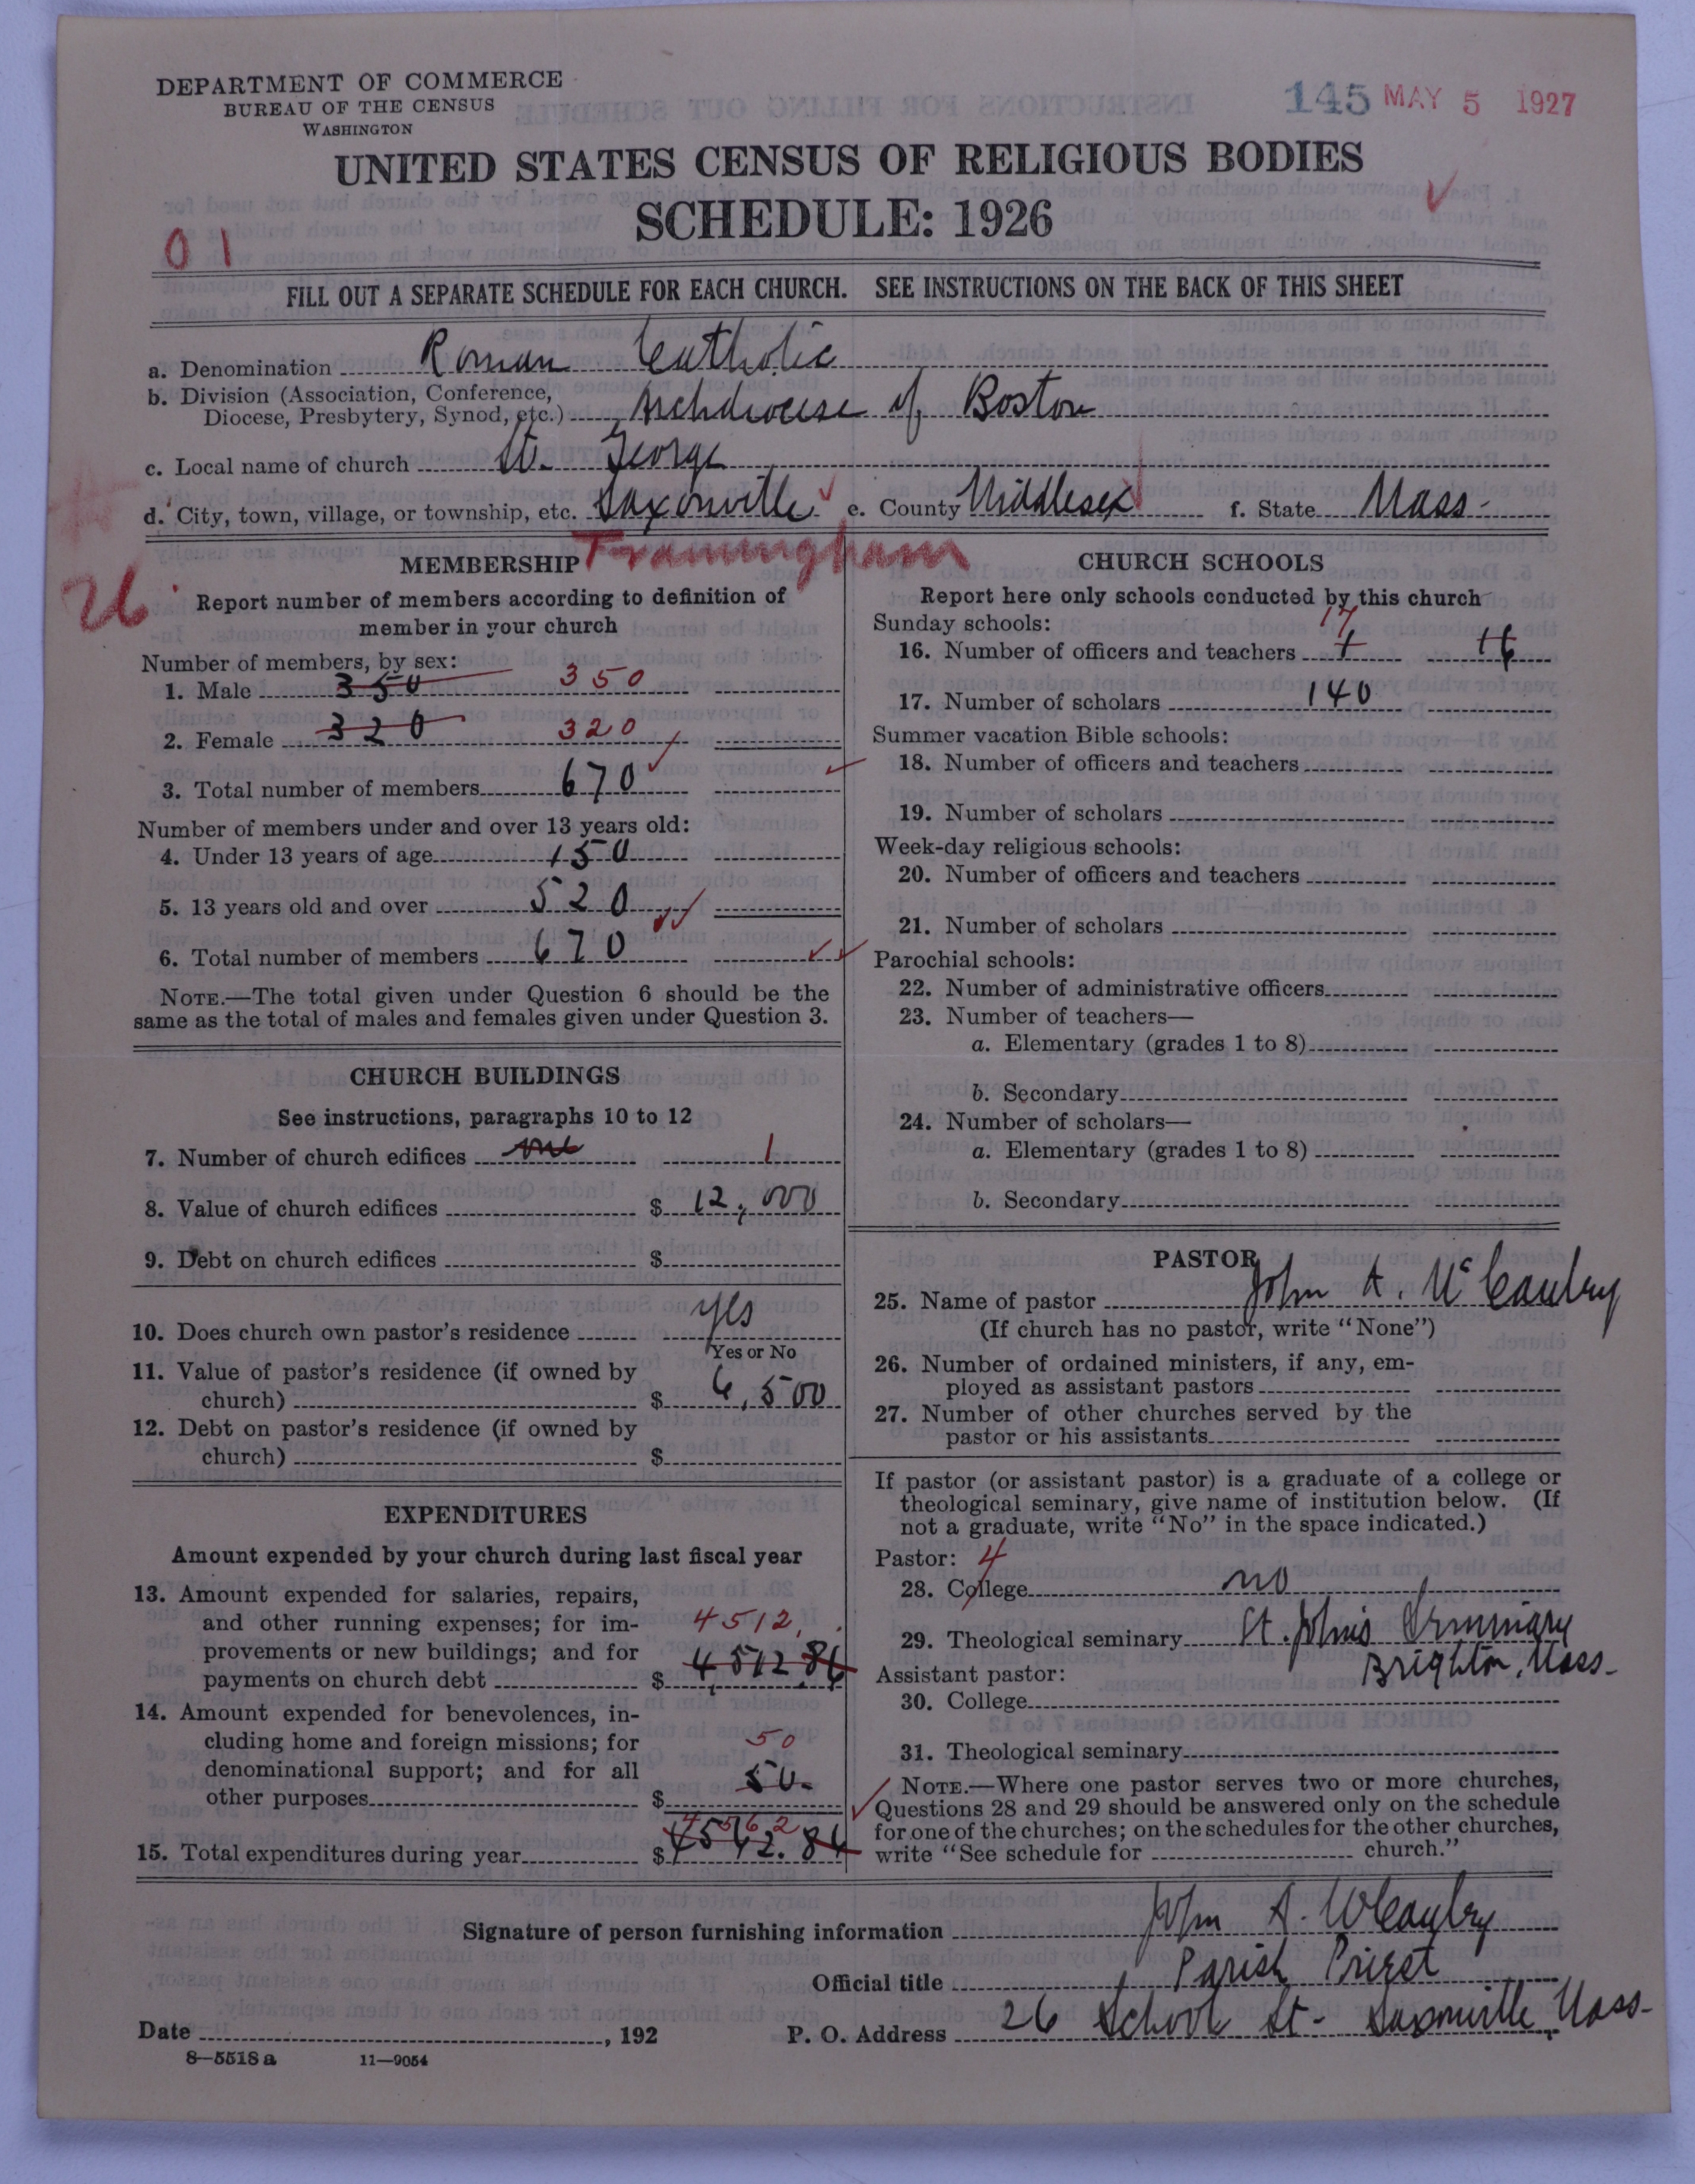 DEPARTMENT OF COMMERCE
BUREAU OF THE CENSUS
WASHINGTON
145 MAY 5 1927
UNITED STATES CENSUS OF RELIGIOUS BODIES
SCHEDULE: 1926
01
FILL OUT A SEPARATE SCHEDULE FOR EACH CHURCH. SEE INSTRUCTIONS ON THE BACK OF THIS SHEET
a. Denomination Roman Catholic
b. Division (Association, Conference,
Diocese, Presbytery, Synod, etc.) Archdiocese of Boston
c. Local name of church St. George
d. City, town, village, or township, etc. Saxonville e. County Middlesex f. State Mass-
Framingham
26
MEMBERSHIP
Report number of members according to definition of
member in your church
Number of members, by sex:
1. Male 350 350
2. Female 320 320
3. Total number of members 670
Number of members under and over 13 years old:
4. Under 13 years of age 150
5. 13 years old and over 520
6. Total number of members 670
NOTE.—The total given under Question 6 should be the
same as the total of males and females given under Question 3.
CHURCH BUILDINGS
See instructions, paragraphs 10 to 12
7. Number of church edifices one 1
8. Value of church edifices $ 12,000
9. Debt on church edifices $
10. Does church own pastor's residence yes
Yes or No
11. Value of pastor's residence (if owned by
church) $ 6,500
12. Debt on pastor's residence (if owned by
church) $
EXPENDITURES
Amount expended by your church during last fiscal year
13. Amount expended for salaries, repairs,
and other running expenses; for im-
provements or new buildings; and for
payments on church debt $ 4512.84
4512
14. Amount expended for benevolences, in-
cluding home and foreign missions; for
denominational support; and for all
other purposes $ 50.
50
15. Total expenditures during year $ 4562.84
4562
CHURCH SCHOOLS
Report here only schools conducted by this church
Sunday schools:
17
16. Number of officers and teachers + 16
17. Number of scholars 140
Summer vacation Bible schools:
18. Number of officers and teachers
19. Number of scholars
Week-day religious schools:
20. Number of officers and teachers
21. Number of scholars
Parochial schools:
22. Number of administrative officers
23. Number of teachers—
a. Elementary (grades 1 to 8)
b. Secondary
24. Number of scholars—
a. Elementary (grades 1 to 8)
b. Secondary
PASTOR
25. Name of pastor John A. McCauley
(If church has no pastor, write "None")
26. Number of ordained ministers, if any, em-
ployed as assistant pastors
27. Number of other churches served by the
pastor or his assistants
If pastor (or assistant pastor) is a graduate of a college or
theological seminary, give name of institution below. (If
not a graduate, write "No" in the space indicated.)
Pastor: 4
28. College no
29. Theological seminary St. John's Seminary
Brighton, Mass-
Assistant pastor:
30. College
31. Theological seminary
NOTE.—Where one pastor serves two or more churches,
Questions 28 and 29 should be answered only on the schedule
for one of the churches; on the schedules for the other churches,
write "See schedule for church."
Signature of person furnishing information John A. McCauley
Official title Parish Priest
Date , 192 P. O. Address 26 School St- Saxonville, Mass-
8—5518a 11—9054